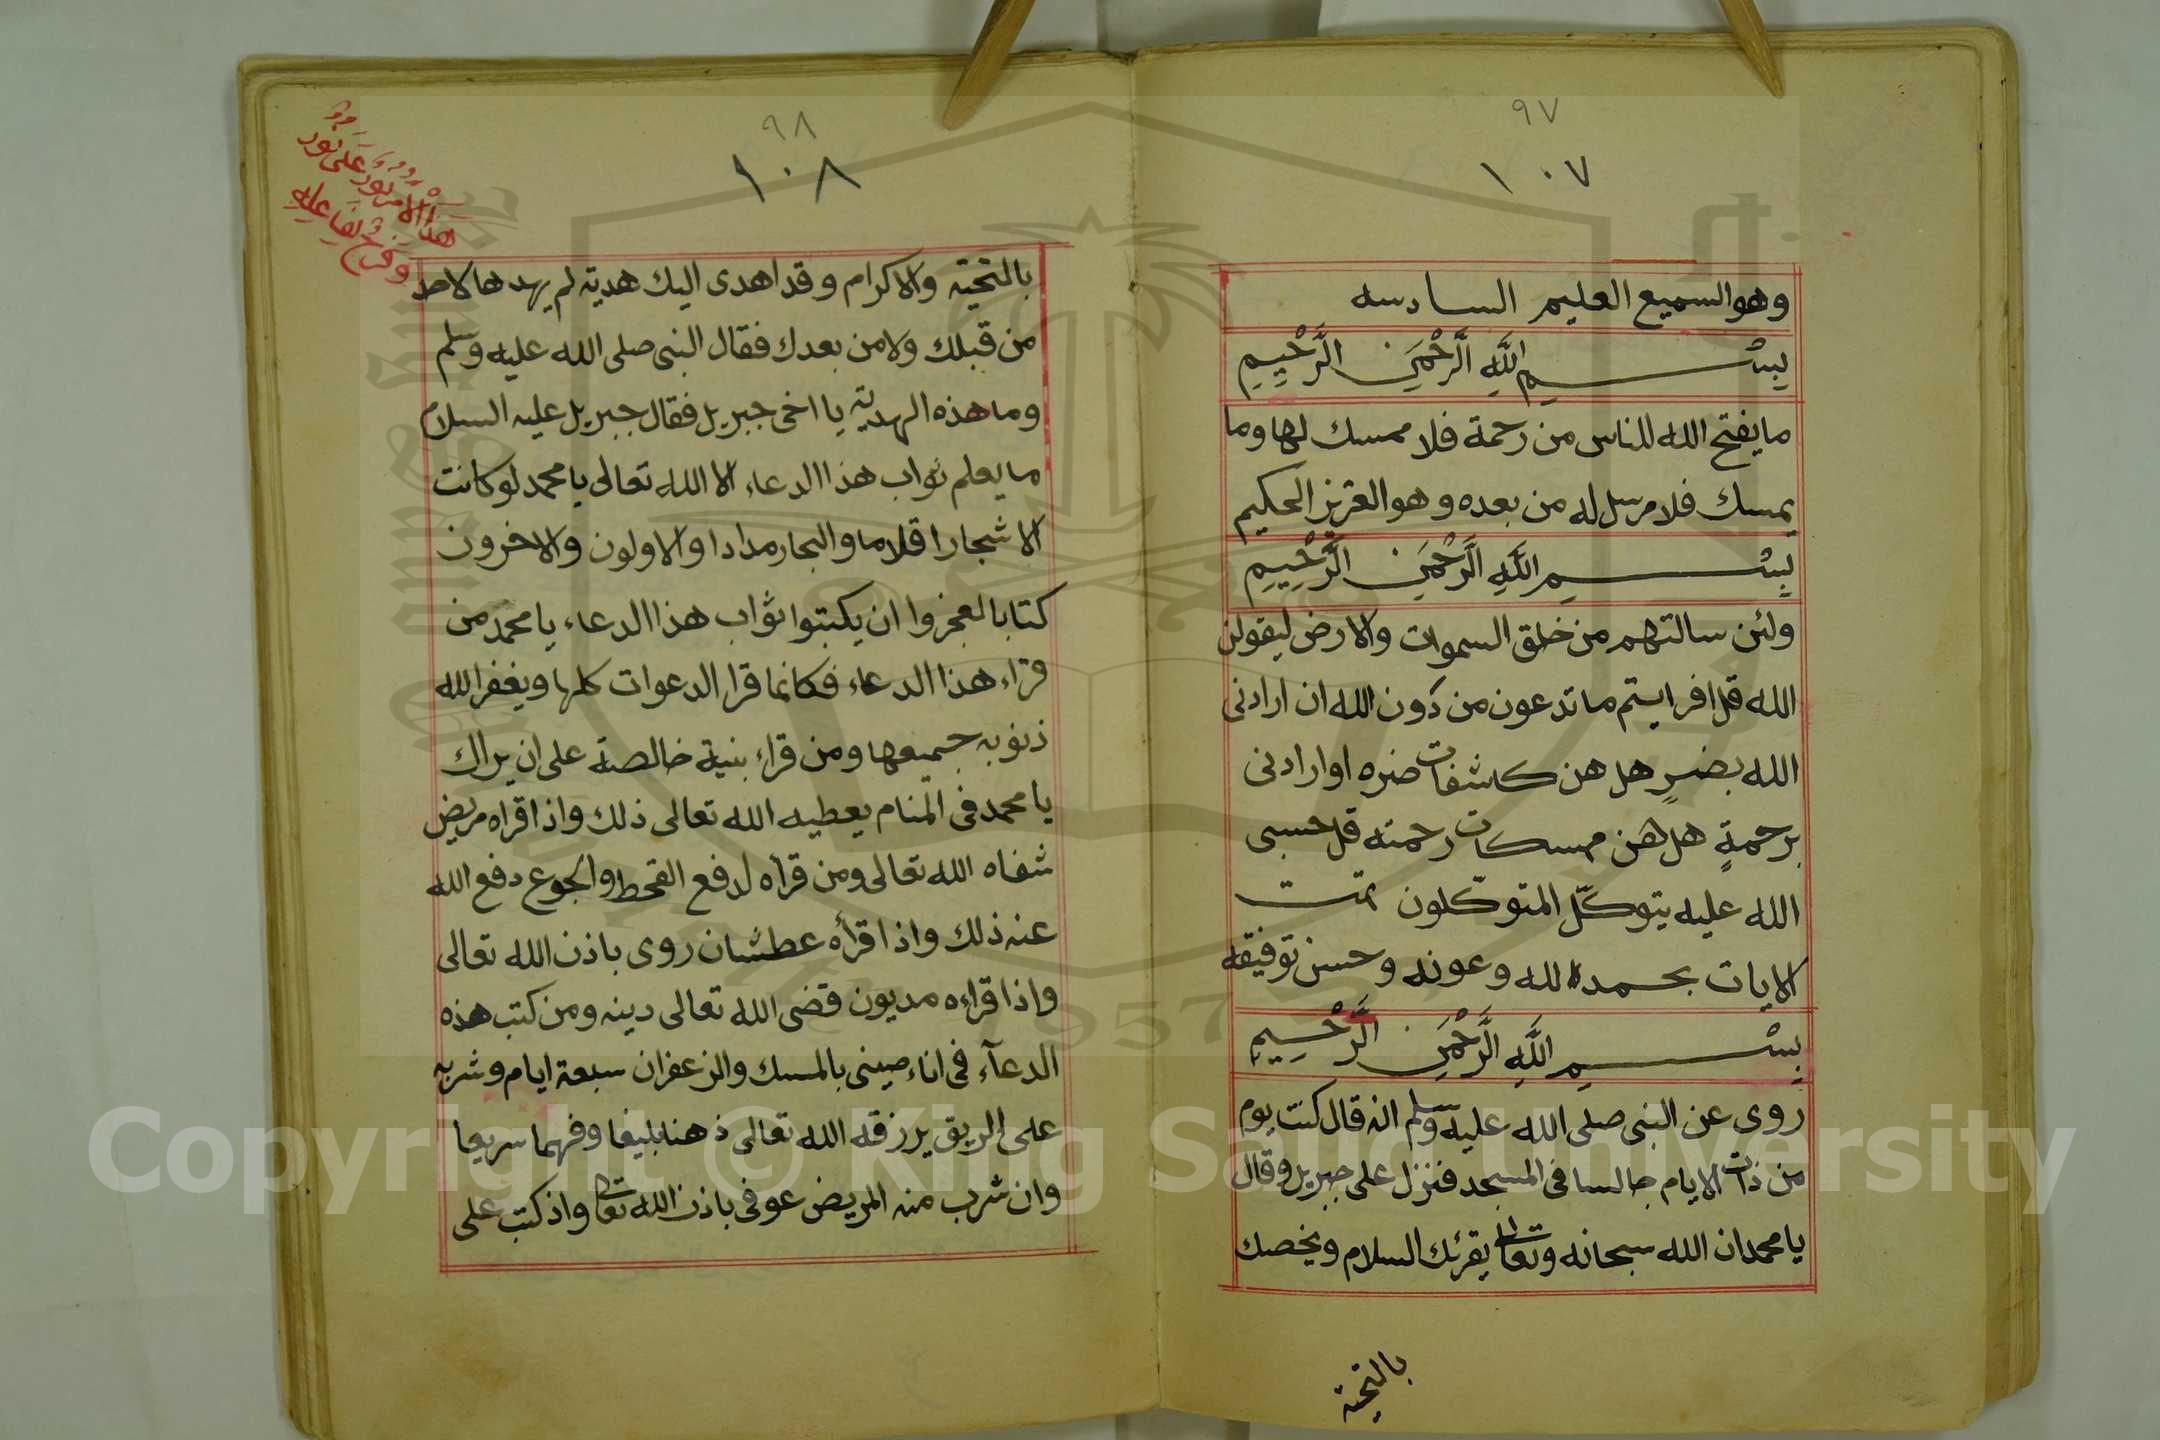 ٩٧
١٠٧
وهو السميع العليم السادسه
بِسْمِ اللَّهِ الرَّحْمَنِ الرَّحِيمِ
ما يفتح الله للناس من رحمة فلا ممسك لها وما
يمسك فلا مرسل له من بعده وهو العزيز الحكيم
بِسْمِ اللَّهِ الرَّحْمَنِ الرَّحِيمِ
ولئن سالتهم من خلق السموات والارض ليقولن
الله قل افرايتم ما تدعون من دون الله ان ارادنى
الله بضرٍ هل هن كاشفات ضره او ارادنى
برحمةٍ هل هن ممسكات رحمته قل حسبى
الله عليه يتوكّل المتوكّلون تمت
الايات بحمد الله وعونه وحسن توفيقه
بِسْمِ اللَّهِ الرَّحْمَنِ الرَّحِيمِ
روى عن النبى صلى الله عليه وسلم انه قال كنت يوم
من ذات الايام جالسا فى المسجد فنزل على جبريل وقال
يا محمد ان الله سبحانه وتعالى يقرئك السلام ويخصك
بالتحية
٩٨
١٠٨
هذا الامر نور على نور
بالتحية والاكرام وقد اهدى اليك هدية لم يهدها لاحد
من قبلك ولا من بعدك فقال النبى صلى الله عليه وسلم
وما هذه الهدية يا اخى جبريل فقال جبريل عليه السلام
ما يعلم ثواب هذا الدعاء الا الله تعالى يا محمد لو كانت
الاشجار اقلاما والبحار مدادا والاولون والاخرون
كتابا لعجزوا ان يكتبوا ثواب هذا الدعاء يا محمد من
قراء هذا الدعاء فكانما قرا الدعوات كلها ويغفر الله
ذنوبه جميعها ومن قراء بنية خالصة على ان يراك
يا محمد فى المنام يعطيه الله تعالى ذلك واذا قراه مريض
شفاه الله تعالى ومن قرأه لدفع القحط والجوع دفع الله
عنه ذلك واذا قرأه عطشان روى باذن الله تعالى
واذا قراءه مديون قضى الله تعالى دينه ومن كتب هذه
الدعآء فى اناء صينى بالمسك والزعفران سبعة ايام وشربه
على الريق يرزقه الله تعالى ذهنا بليغا وفهما سريعا
وان شرب منه المريض عوفى باذن الله تعالى واذ كتب على
Copyright © King Saud University
1957